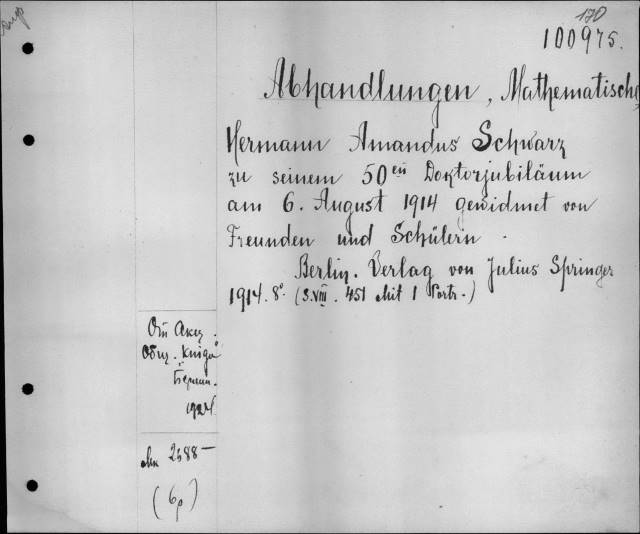 170
100975.
Abhandlungen, Mathematische,
Hermann Amandus Schwarz
zu seinem 50en Doktorjubiläum
am 6. August 1914 gewidmet von
Freunden und Schülern.
Berlin. Verlag von Julius Springer
1914. 8°. (S. VIII. 451 Mit 1 Portr.)
От Акц.
Общ. "Книга"
Берлин.
1924.
2688—
(6р)